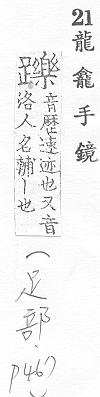 21 龍龕手鏡
躒 音歷逺迹也又音
洛人名輔丨也
(足部, p467)